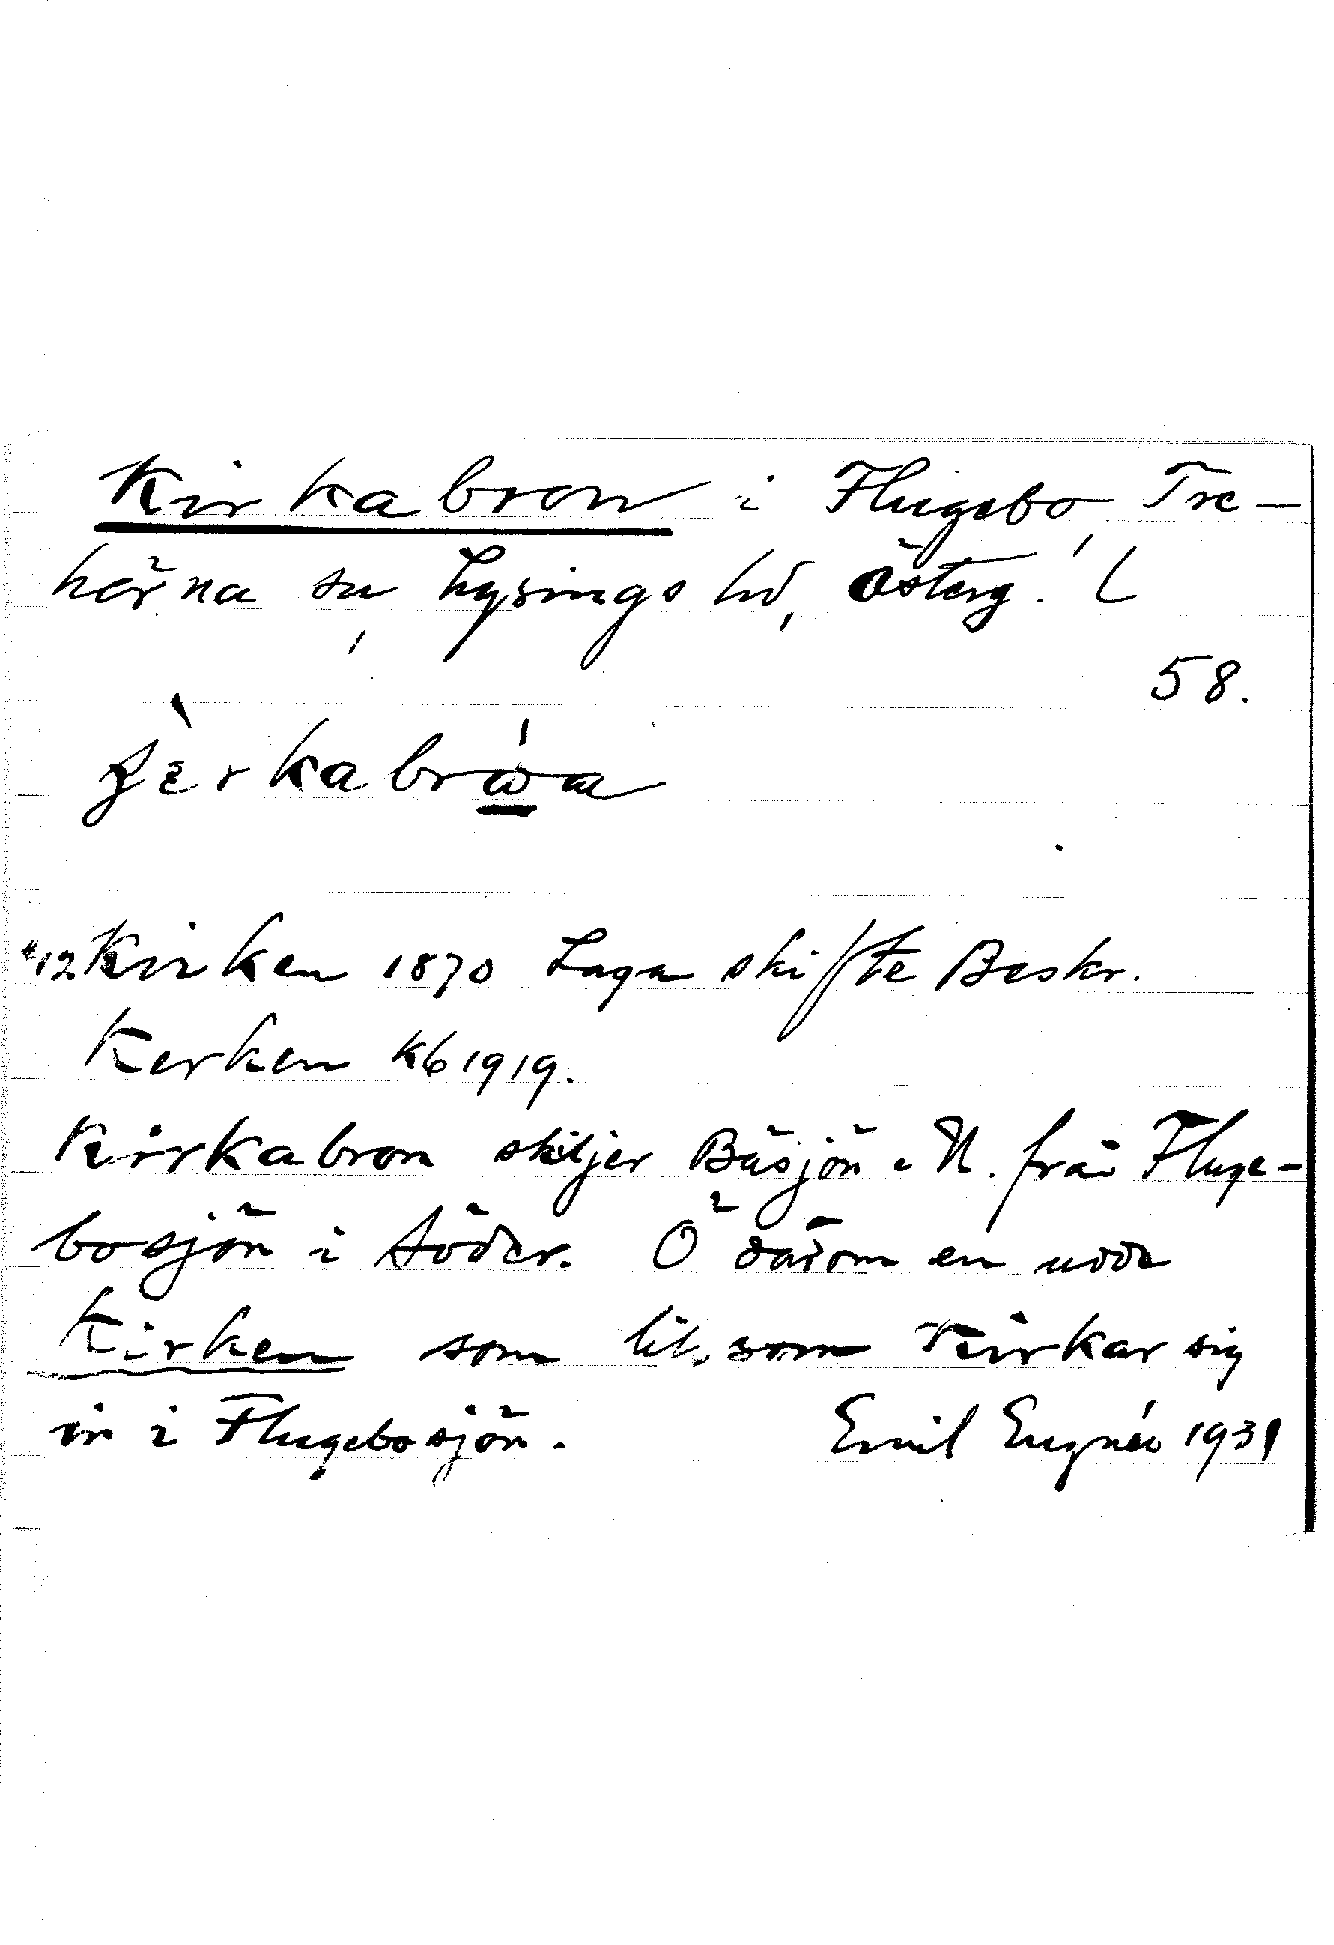 Kirkabron i Flugebo, Tre-
hörna sn, Lysings hd, Österg. l
58.
Kirken 1870 Laga skifte Beskr.
Kerken Kb 1919.
Kirkabron skiljer Båsjön i N. från Fluge-
bosjön i Söder. Ö därom en udde
Kirken som lik.som kirkar sig
in i Flugebosjön. Emil Eugnéu 1931